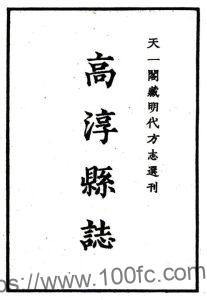 天一閣藏明代方志選刊
高淳縣誌
https://www.100fc.com